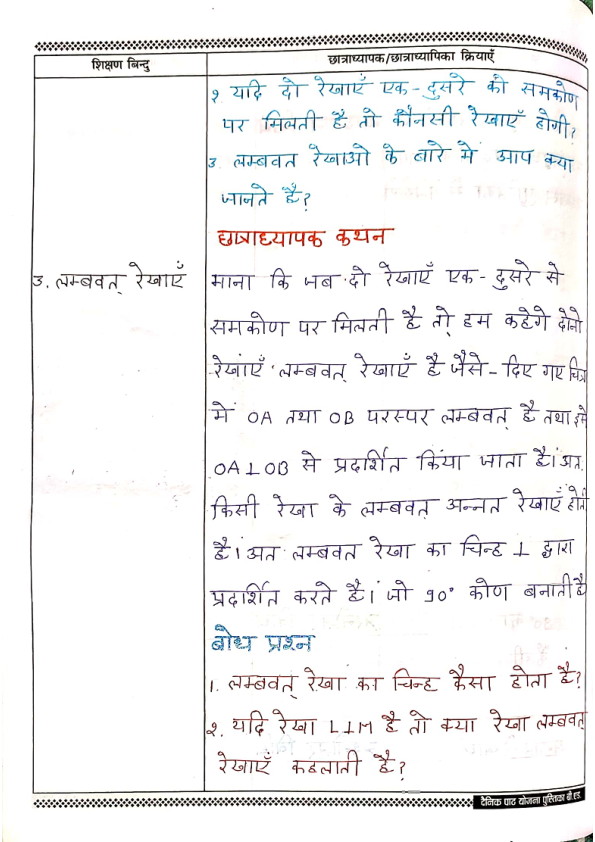 शिक्षण बिन्दु
छात्राध्यापक/छात्राध्यापिका क्रियाएँ
२. यदि दो रेखाएँ एक-दुसरे को समकोण
पर मिलती है तो कौनसी रेखाएँ होगी?
3. लम्बवत रेखाओ के बारे में आप क्या
जानते है?
छात्राध्यापक कथन
3. लम्बवत् रेखाएँ
माना कि जब दो रेखाएँ एक-दुसरे से
समकोण पर मिलती है तो हम कहेगे दोनो
रेखाएँ लम्बवत् रेखाएँ है जैसे- दिए गए चित्र
में OA तथा OB परस्पर लम्बवत् है तथा इसे
OA⊥OB से प्रदर्शित किया जाता है। अत
किसी रेखा के लम्बवत् अन्नत रेखाएँ होती
है। अत लम्बवत रेखा का चिन्ह ⊥ द्वारा
प्रदर्शित करते है। जो 90° कोण बनाती है
बोध प्रश्न
1. लम्बवत् रेखा का चिन्ह कैसा होता है?
२. यदि रेखा L⊥M है तो क्या रेखा लम्बवत्
रेखाएँ कहलाती है?
दैनिक पाठ योजना पुस्तिका बी.एड.